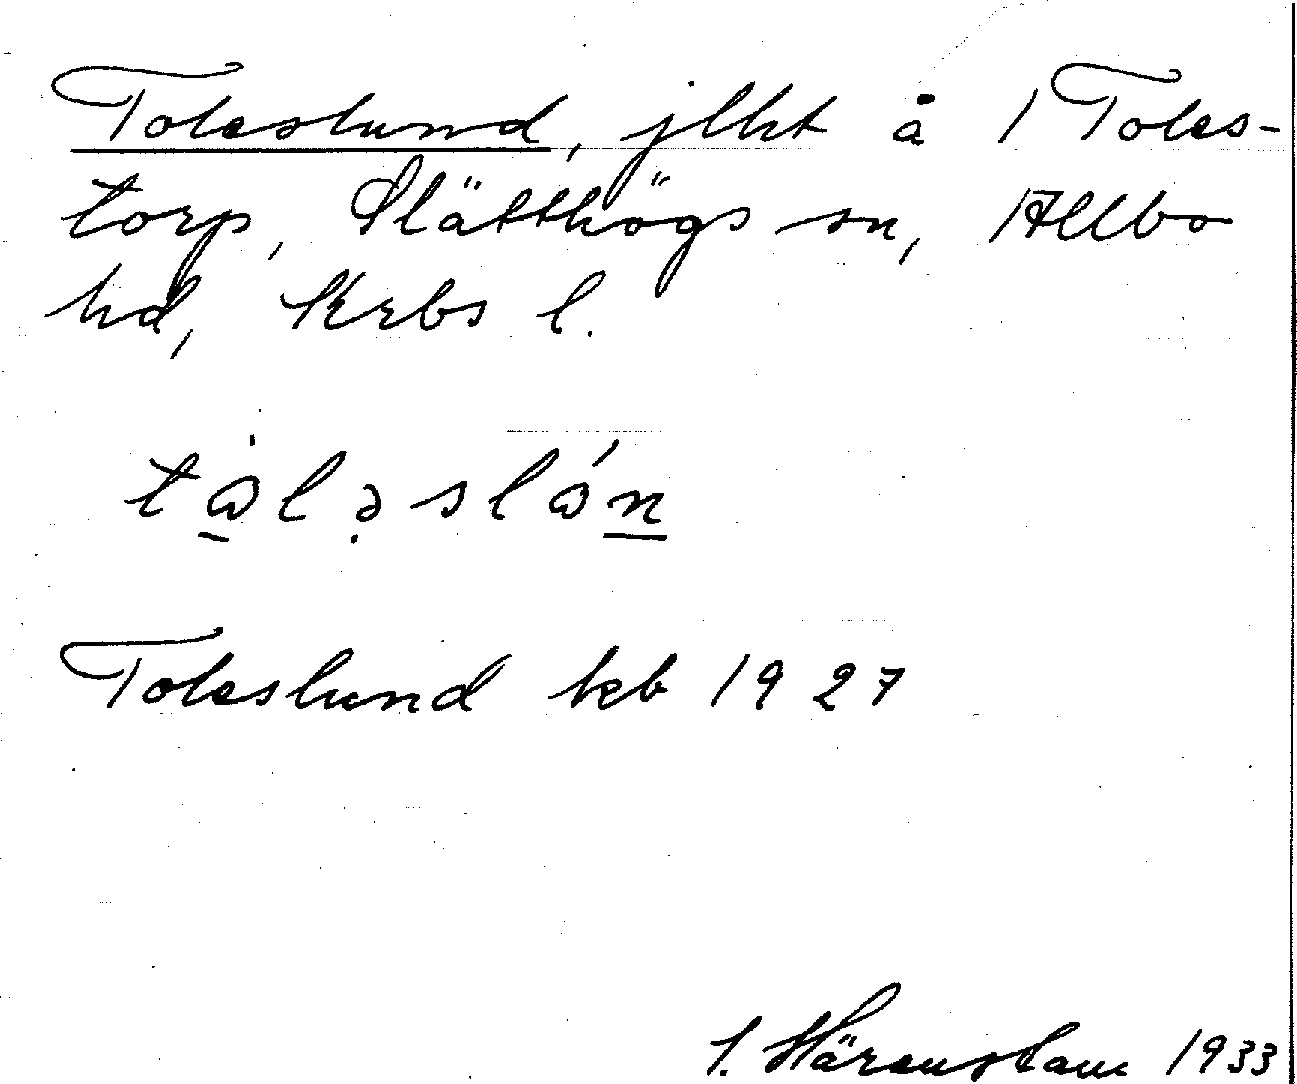 Toleslund, jlht å 1 Toles-
torp, Slätthögs sn, Allbo
hd, Krbs l.
tω̲lə̣slώn̲
Toleslund kb 1927
S. Härenstam 1933